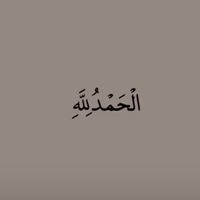 الْحَمْدُلِلَّهِ